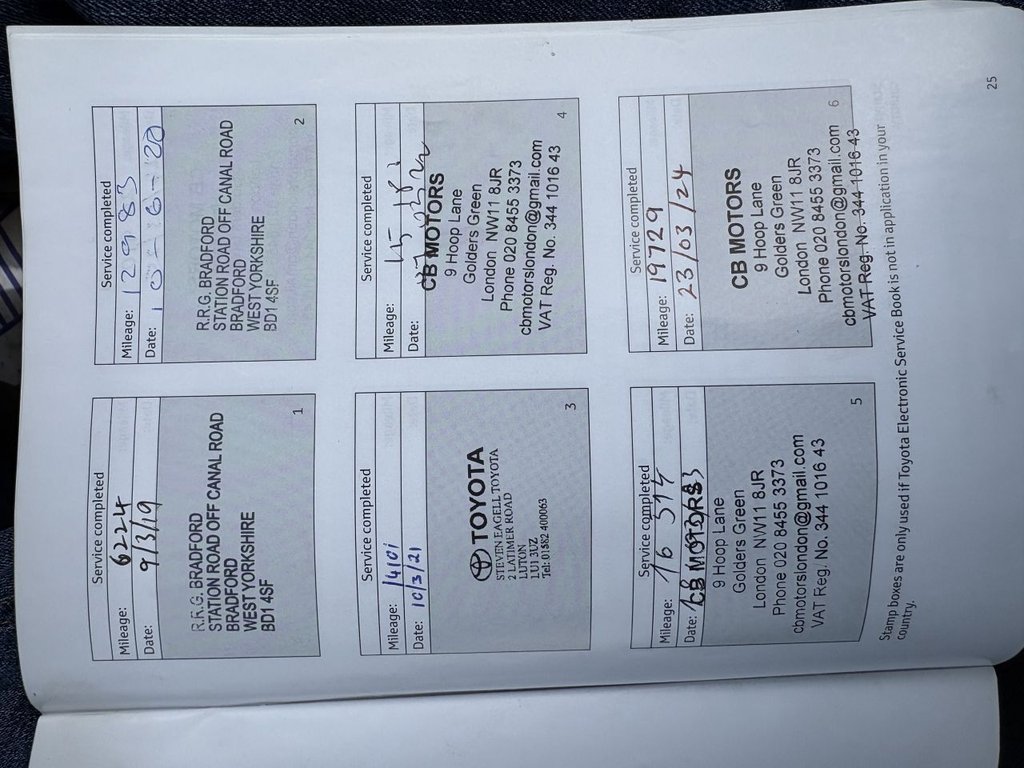 Service completed
Mileage: 6224
Date: 9/3/19
R.R.G. BRADFORD
STATION ROAD OFF CANAL ROAD
BRADFORD
WEST YORKSHIRE
BD1 4SF
1
Service completed
Mileage: 12983
Date: 10-6-20
R.R.G. BRADFORD
STATION ROAD OFF CANAL ROAD
BRADFORD
WEST YORKSHIRE
BD1 4SF
2
Service completed
Mileage: 14101
Date: 10/3/21
TOYOTA
STEVEN EAGELL TOYOTA
2 LATIMER ROAD
LUTON
LU1 3UZ
Tel: 01582 400063
3
Service completed
Mileage:
Date:
CB MOTORS
9 Hoop Lane
Golders Green
London NW11 8JR
Phone 020 8455 3373
cbmotorslondon@gmail.com
VAT Reg. No. 344 1016 43
4
Service completed
Mileage: 16 514
Date:
CB MOTORS
9 Hoop Lane
Golders Green
London NW11 8JR
Phone 020 8455 3373
cbmotorslondon@gmail.com
VAT Reg. No. 344 1016 43
5
Service completed
Mileage: 19729
Date: 23/03/24
CB MOTORS
9 Hoop Lane
Golders Green
London NW11 8JR
Phone 020 8455 3373
cbmotorslondon@gmail.com
VAT Reg. No. 344 1016 43
6
Stamp boxes are only used if Toyota Electronic Service Book is not in application in your
country.
25